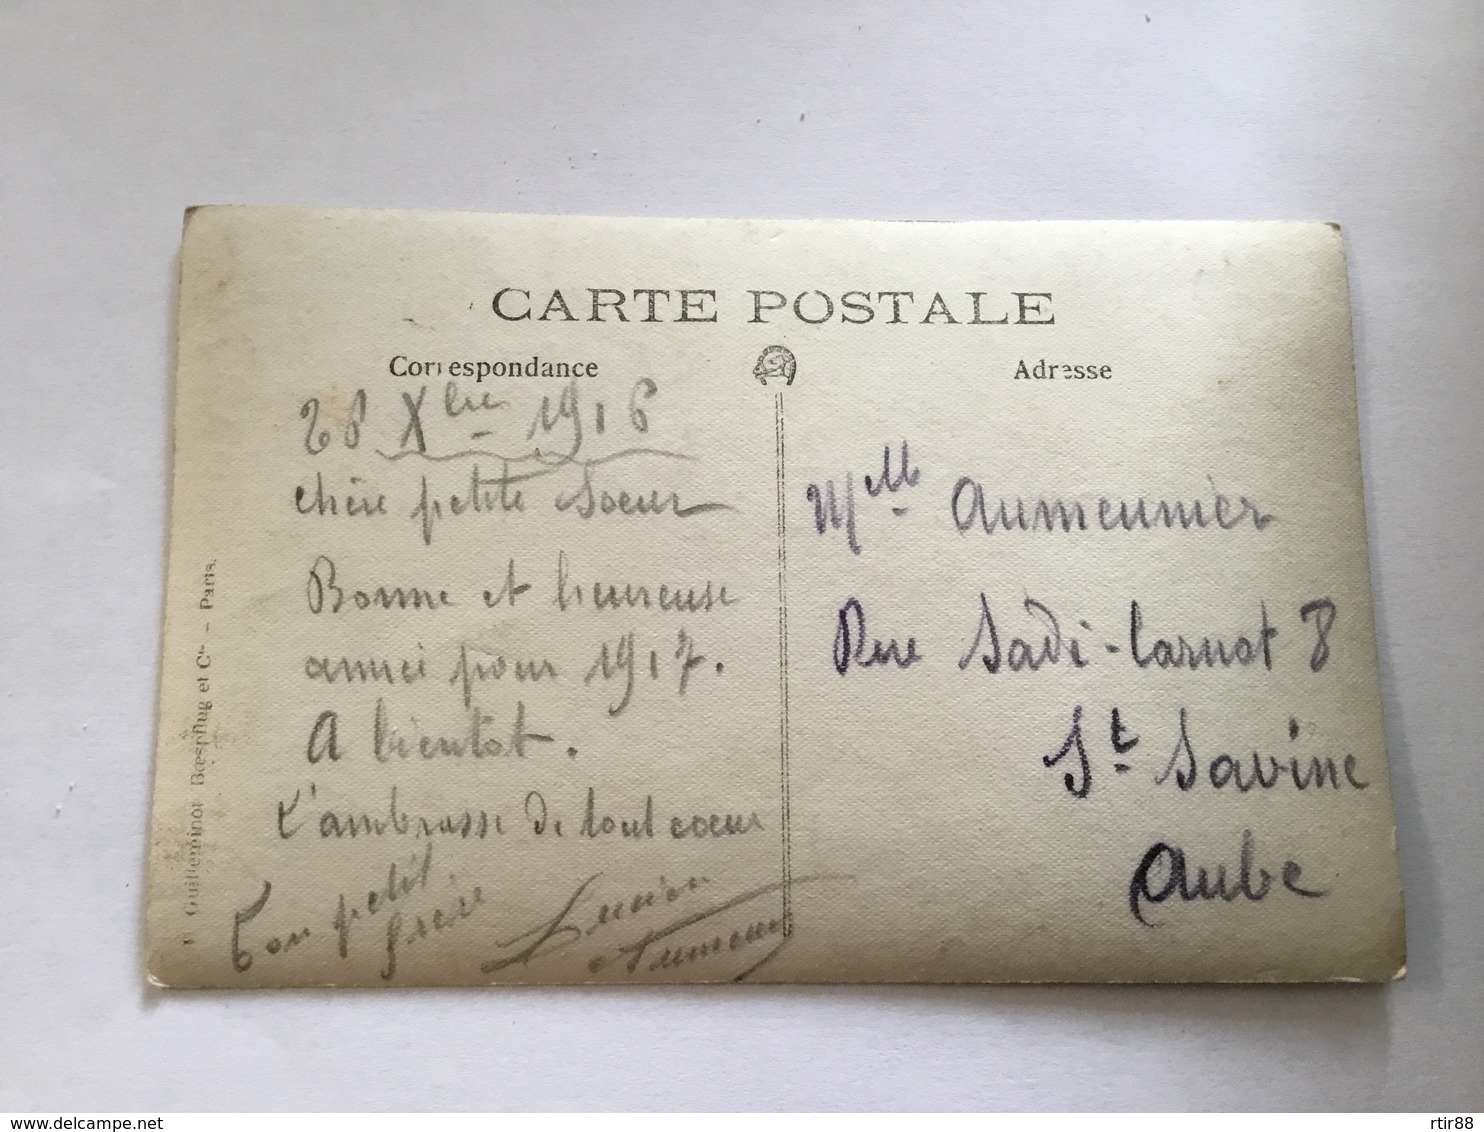 CARTE POSTALE
Correspondance
Adresse
28 Xbre 1916
chère petite Soeur
Bonne et heureuse
année pour 1917.
A bientot.
T'ambrasse de tout coeur
Ton petit
frère
Lucien
Aumeunier
Mlle Aumeunier
Rue Sadi-Carnot 8
St Savine
Aube
R. Guilleminot Bœspflug et Cie – Paris.
delcampe.net
rtir88